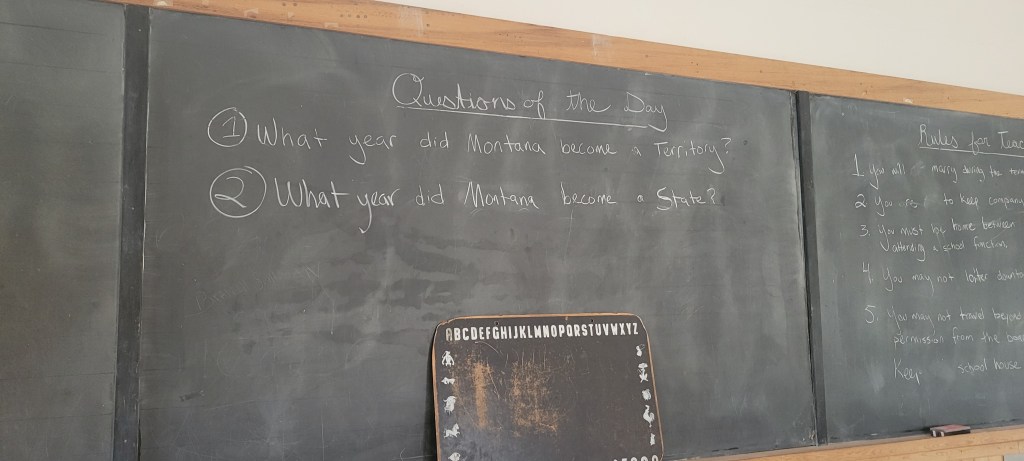 Questions of the Day
① What year did Montana become a Territory?
② What year did Montana become a State?
ABCDEFGHIJKLMNOPQRSTUVWXYZ
Rules for
1 You will marry during the
2 You to keep company
3. You must be home between
attending a school function.
4. You may not loiter
5. You may not travel beyond
permission from the
Keep school house